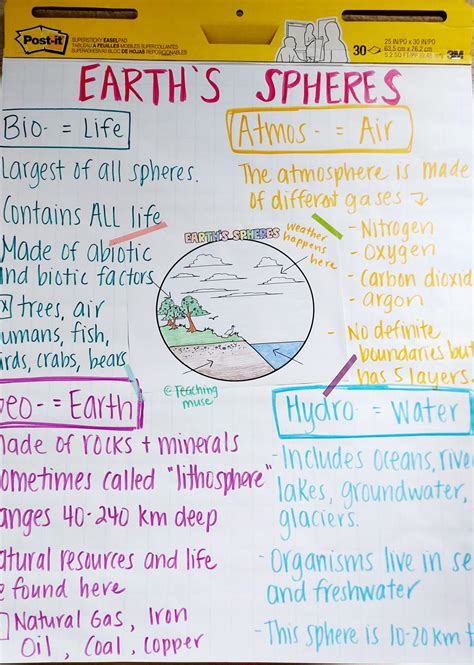 Post-it
SUPERSTICKY EASEL PAD
30
25 IN/PO x 30 IN/PO
63,5 cm x 76,2 cm
3M
EARTH'S SPHERES
Bio- = Life
Largest of all spheres.
Contains ALL life
Made of abiotic
and biotic factors
trees, air
humans, fish,
birds, crabs, bears
Atmos- = Air
The atmosphere is made
of different gases
- Nitrogen
- Oxygen
- Carbon dioxid
- argon
- No definite
boundaries but
has 5 layers.
EARTH'S SPHERES
Weather
happens
here
@Teaching
muse
Geo- = Earth
made of rocks + minerals
sometimes called "lithosphere"
ranges 40-240 km deep
natural resources and life
found here
Natural Gas, Iron
Oil, Coal, Copper
Hydro- = Water
- Includes oceans, rive
lakes, groundwater,
glaciers.
- Organisms live in se
and freshwater
- This sphere is 10-20 km